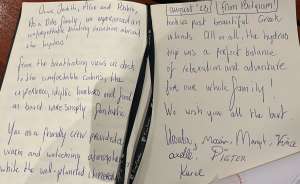 Dear Judith, Alice and Robin,
As a Dike family, we experienced an
unforgettable boating vacation aboard
the hydros
from the breathtaking views on deck
to the comfortable cabins, the
experience, idyllic harbors and food
on board were simply fantastic
You as a friendly crew provided
warm and welcoming atmosphere
while the well-planned itinerary
august '23 (from Belgium)
took us past beautiful Greek
islands. All or all, the hydros
trip was a perfect balance
of relaxation and adventure
for our whole family.
We wish you all the best.
PIETER